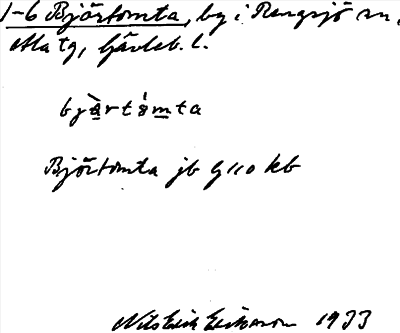 1-6 Björtomta, by i Rengsjö sn,
Ala tg, Gävleb. l.
bjärtòmta
Björtomta jb 9110 kb
Nils Erik Eriksson 1933